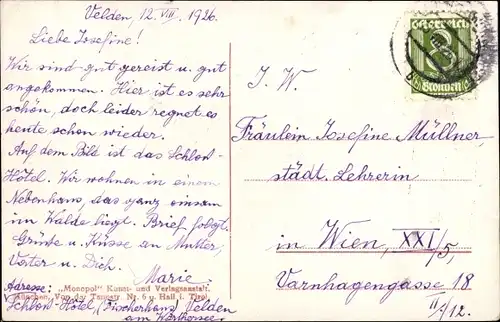 Velden, 12. VIII. 1926.
Liebe Josefine!
Wir sind gut gereist u. gut
angekommen. Hier ist es sehr
schön, doch leider regnet es
heute schon wieder.
Auf dem Bild ist das Schloss-
Hôtel. Wir wohnen in einem
Nebenhaus, das ganz einsam
im Walde liegt. Brief folgt.
Grüsse u. Küsse an Mutter,
Vater u. Dich.
Marie.
Adresse:
Schloss-Hôtel, (Fischerhaus) Velden
am Wörthersee.
„Monopol" Kunst- und Verlagsanstalt,
München, Von der Tannstr. Nr. 6 u. Hall i. Tirol
Österreich
8
Groschen
J. W.
Fräulein Josefine Müllner,
städt. Lehrerin
in Wien, XXI/5,
Varnhagengasse 18
II/12.